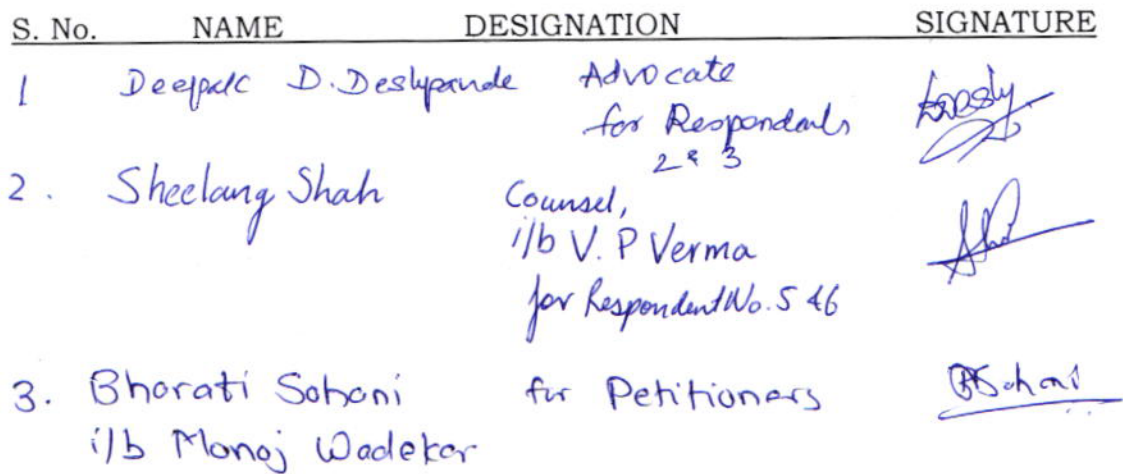 S. No. NAME DESIGNATION SIGNATURE
1 Deepak D. Deshpande Advocate
for Respondents
2 & 3
2. Sheelang Shah Counsel,
i/b V. P Verma
for Respondent No. 5 & 6
3. Bharati Sohani for Petitioners BSohani
i/b Manoj Wadekar